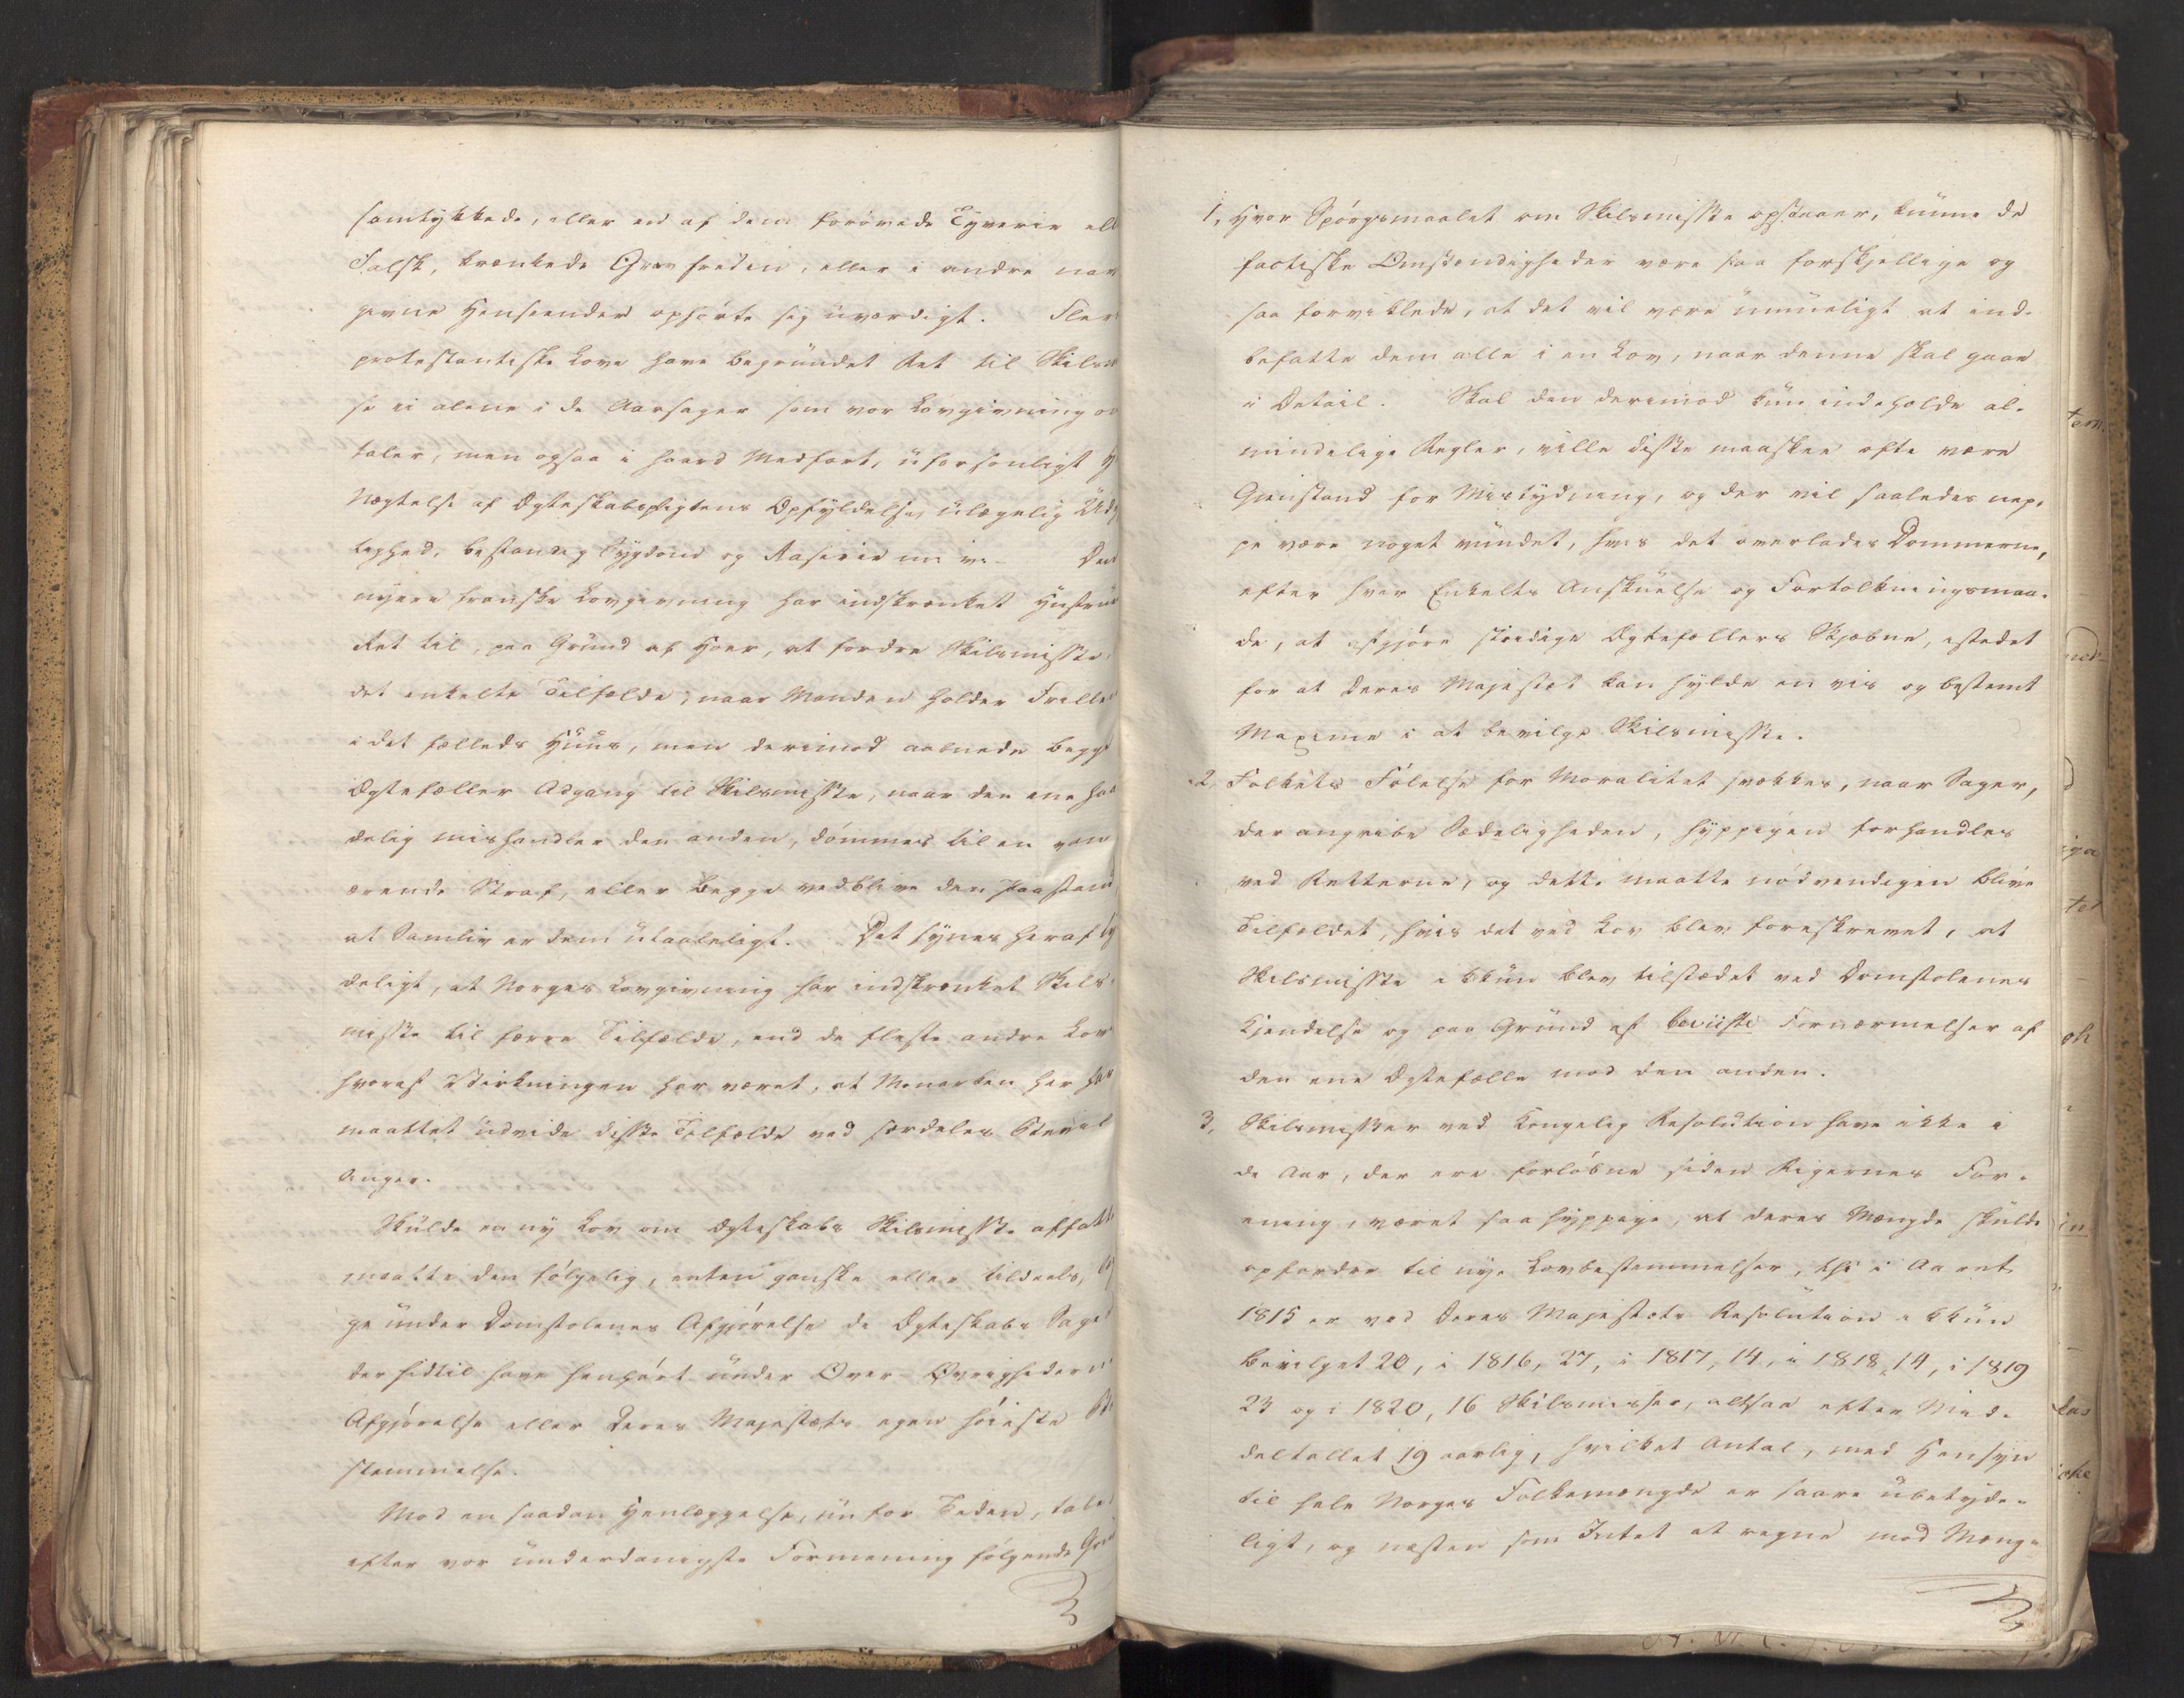 samtykkede, eller en af dem forøvede Tyverie ell
Falsk, krænkede Gravfreden, eller i andre nav
givne Henseender opførte sig uværdigt. Fler
protestantiske Love have begrundet Ret til Skilsm
se ei alene i de Aarsager som vor Lovgivning om
taler, men ogsaa i haard Medfart, uforsonligt H
Nægtelse af Ægteskabspligtens Opfyldelse, ulægelig
lighed, bestandig Sygdom og Raserie m: v:. Den
nyere franske Lovgivning har indskrænket Hustru
Ret til, paa Grund af Hoer, at fordre Skilsmisse,
det enkelte Tilfælde, naar Manden holder Frille
i det fælleds Huus, men derimod aabnede begge
Ægtefæller Adgang til Skilsmisse, naar den ene haa
delig mishandler den anden, dømmes til en van
ærende Straf, eller begge vedblive den Paastand
at Samliv er dem utaaleligt. Det synes heraf ty
deligt, at Norges Lovgivning har indskrænket Skils-
misse til færre Tilfælde, end de fleste andre Lov
hvoraf Virkningen har været, at Monarken her har
maattet udvide disse Tilfælde ved særdeles Bevil
linger.
Skulde en ny Lov om Ægteskabs Skilsmisse affatte
maatte den følgelig, enten ganske eller tildeels, læg
ge under Domstolenes Afgjørelse de Ægteskabs Sager
der hidtil have henhørt under Over-Øvrighedern
Afgjørelse eller Deres Majestæts egen høieste Be
stemmelse.
Mod en saadan Henlæggelse, nu for Tiden, tale
efter vor underdanigste Formening følgende Gru
1, Hvor Spørgsmaalet om Skilsmisse opstaaer, kunne de
factiske Omstændigheder være saa forskjellige og
saa forviklede, at det vil være umueligt at ind-
befatte dem alle i en Lov, naar denne skal gaae
i Detail. Skal den derimod kun indeholde al-
mindelige Regler, ville disse maaskee ofte være
Gienstand for Mistydning, og der vil saaledes nep-
pe være noget vundet, hvis det overlades Dommerne,
efter hver Enkelts Anskuelse og Fortolkningsmaa-
de, at afgjøre stridige Ægtefællers Skjæbne, istedet
for at Deres Majestæt kan hylde en vis og bestemt
Maxime i at bevilge Skilsmisse.
2, Folkets Følelse for Moralitet svækkes, naar Sager,
der angribe Sædeligheden, hyppigen forhandles
ved Retterne, og dette maatte nødvendigen blive
Tilfældet, hvis det ved Lov blev foreskrevet, at
Skilsmisse ikkun blev tilstædet ved Domstolenes
Kjendelse og paa Grund af beviiste Fornærmelser af
den ene Ægtefælle mod den anden.
3, Skilsmisser ved Kongelig Resolution have ikke i
de Aar, der ere forløbne siden Rigernes For-
ening, været saa hyppige, at deres Mængde skulde
opfordre til nye Lovbestemmelser, thi i Aaret
1815 er ved Deres Majestæts Resolution ikkun
bevilget 20, i 1816, 27, i 1817, 14, i 1818, 14, i 1819
23 og i 1820, 16 Skilsmisser, altsaa efter Mid-
deltallet 19 aarlig, hvilket Antal, med Hensyn
til hele Norges Folkemængde er saare ubetyde-
ligt, og næsten som Intet at regne mod Mæng-